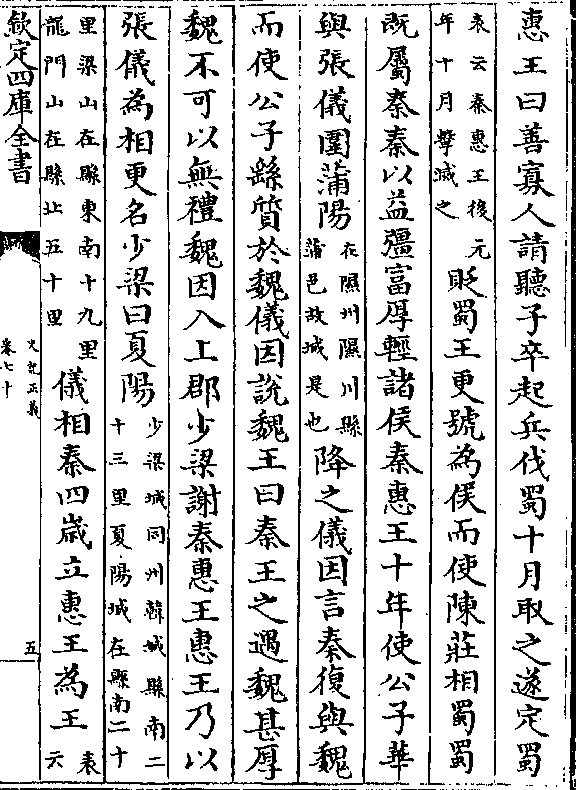 惠王曰善寡人請聽子卒起兵伐蜀十月取之遂定蜀
表云秦惠王後元
年十月擊滅之
貶蜀王更號為侯而使陳莊相蜀蜀
既屬秦秦以益彊富厚輕諸侯秦惠王十年使公子華
與張儀圍蒲陽
在隰州隰川縣
蒲邑故城是也
降之儀因言秦復與魏
而使公子繇質於魏儀因說魏王曰秦王之遇魏甚厚
魏不可以無禮魏因入上郡少梁謝秦惠王惠王乃以
張儀為相更名少梁曰夏陽
少梁城同州韓城縣南二
十三里夏陽城在縣南二十
里梁山在縣東南十九里
龍門山在縣北五十里
儀相秦四歲立惠王為王
表
云
欽定四庫全書
史記正義
卷七十
五